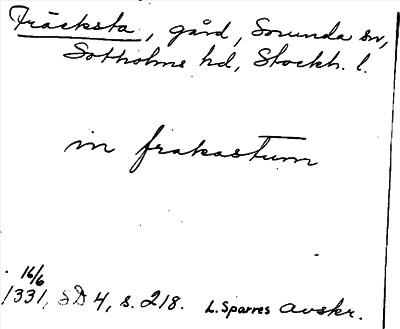 Fräcksta, gård, Sorunda sn,
Sotholms hd, Stockh. l.
in frakastum
16/6
1331, SD 4, s. 218. L. Sparres avskr.